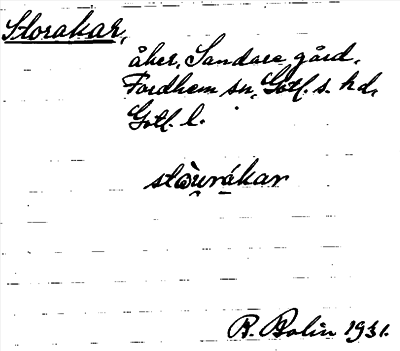 Storakar,
åker, Sandare gård,
Fordhem sn, Gotl. s. hd,
Gotl. l.
stòurákar
B. Bolin 1931.